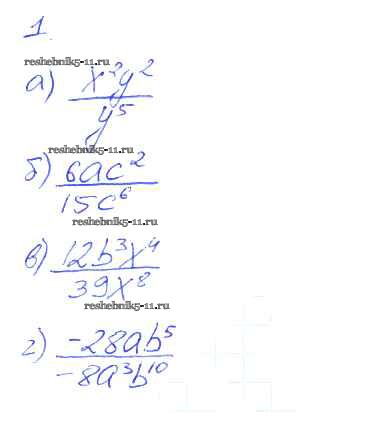 1.
reshebnik5-11.ru
а) x²y²
y⁵
reshebnik5-11.ru
б) 6ac²
15c⁶
reshebnik5-11.ru
в) 12b³x⁴
39x⁸
reshebnik5-11.ru
г) -28ab⁵
-8a³b¹⁰